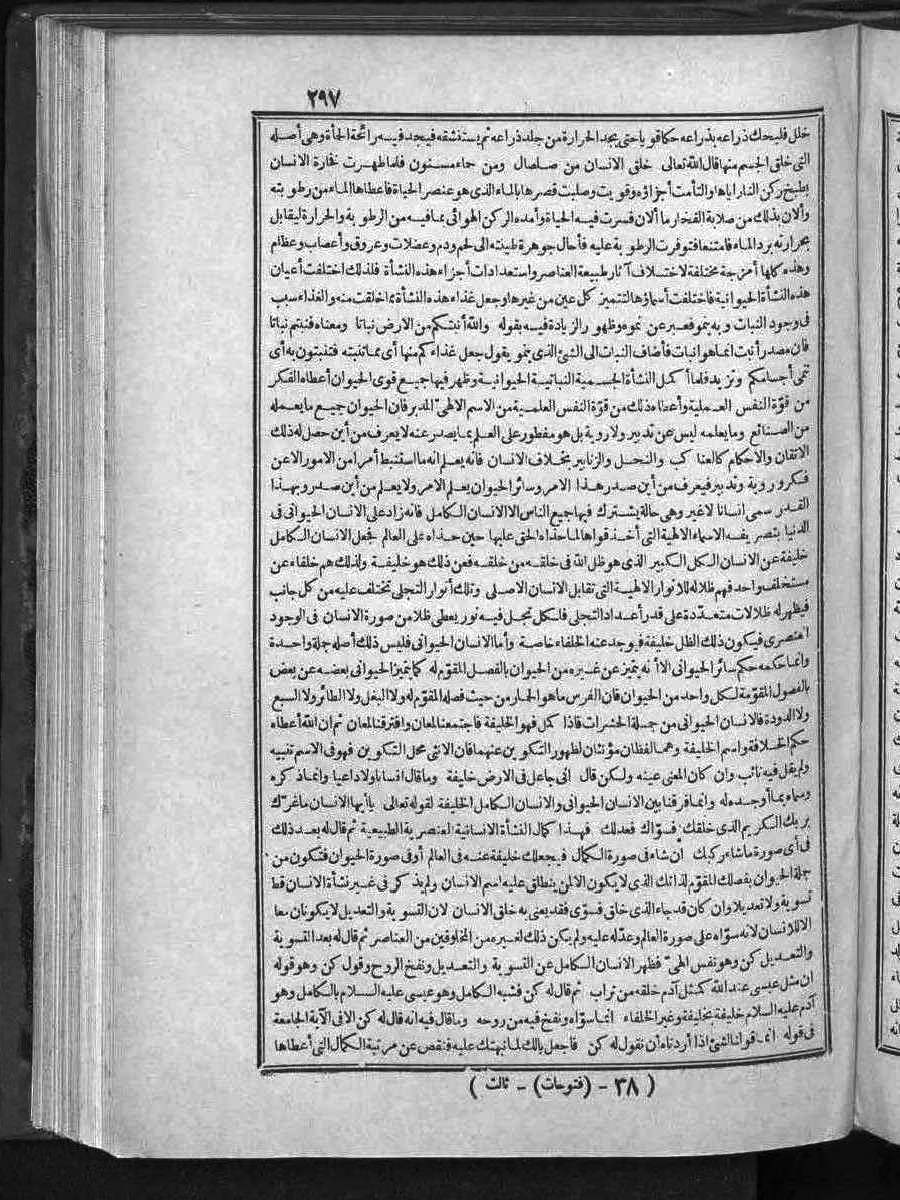 ٢٩٧
خلل فليحك ذراعه بذراعه حكا قويا حتى يجد الحرارة من جلد ذراعه ثم يستنشقه فيجد فيه رائحة الحمأة وهى أصله
التى خلق الجسم منها قال الله تعالى خلق الانسان من صلصال ومن حماء مسنون فلما ظهرت فخارة الانسان
بطبخ ركن النار اياها والتأمت أجزاؤه وقويت وصلبت قصرها بالماء الذى هو عنصر الحياة فأعطاها الماء من رطوبته
وألان بذلك من صلابة الفخار ما ألان فسرت فيه الحياة وأمده الركن الهوائى بما فيه من الرطوبة والحرارة ليقابل
بحرارته برد الماء فامتنعا فتوفرت الرطوبة عليه فأحال جوهرة طينته الى لحم ودم وعضلات وعروق وأعصاب وعظام
وهذه كلها أمزجة مختلفة لاختلاف آثار طبيعة العناصر واستعدادات أجزاء هذه النشأة فلذلك اختلفت أعيان
هذه النشأة الحيوانية فاختلفت أسماؤها لتتميز كل عين من غيرها وجعل غذاء هذه النشأة مما خلقت منه والغذاء سبب
فى وجود النبات وبه ينمو فعبر عن نموه وظهور الزيادة فيه بقوله والله أنبتكم من الارض نباتا ومعناه فنبتم نباتا
فان مصدر أنبت انما هو انبات فأضاف النبات الى الشئ الذى ينمو يقول جعل غذاءكم منها أى مما تنبته فتنبتون به أى
تنمى أجسامكم وتزيد فلما أكمل النشأة الجسمية النباتية الحيوانية وظهر فيها جميع قوى الحيوان أعطاه الفكر
من قوّة النفس العملية وأعطاه ذلك من قوّة النفس العلمية من الاسم الالهىّ المدبر فان الحيوان جميع ما يعمله
من الصنائع وما يعلمه ليس عن تدبير ولا روية بل هو مفطور على العلم بما يصدر عنه لا يعرف من أين حصل له ذلك
الاتقان والاحكام كالعناكب والنحل والزنابير بخلاف الانسان فانه يعلم انه ما استنبط أمرا من الامور الا عن
فكر وروية وتدبير فيعرف من أين صدر هذا الامر وسائر الحيوان يعلم الامر ولا يعلم من أين صدر وبهذا
القدر سمى انسانا لا غير وهى حالة يشترك فيها جميع الناس الا الانسان الكامل فانه زاد على الانسان الحيوانى فى
الدنيا بتصريفه الاسماء الالهية التى أخذ قواها لما حذاه الحق عليها حين حذاه على العالم فجعل الانسان الكامل
خليفة عن الانسان الكل الكبير الذى هو ظل الله فى خلقه من خلقه فعن ذلك هو خليفة ولذلك هم خلفاء عن
مستخلف واحد فهم ظلاله للانوار الالهية التى تقابل الانسان الاصلى وتلك أنوار التجلى تختلف عليه من كل جانب
فيظهر له ظلالات متعدّدة على قدر أعداد التجلى فلكل تجل فيه نور يعطى ظلا من صورة الانسان فى الوجود
العنصرى فيكون ذلك الظل خليفة فيوجد عنه الخلفاء خاصة وأما الانسان الحيوانى فليس ذلك أصله جملة واحدة
وانما حكمه حكم سائر الحيوانى الا أنه يتميز عن غيره من الحيوان بالفصل المقوّم له كما يتميز الحيوانى بعضه عن بعض
بالفصول المقوّمة لكل واحد من الحيوان فان الفرس ما هو الحمار من حيث فصله المقوم له ولا البغل ولا الطائر ولا السبع
ولا الدودة فالانسان الحيوانى من جملة الحشرات فاذا كمل فهو الخليفة فاجتمعنا لمعان وافترقنا لمعان ثم ان الله أعطاه
حكم الخلافة واسم الخليفة وهما لفظان مؤنثان لظهور التكوين عنهما فان الانثى محل التكوين فهو فى الاسم تنبيه
ولم يقل فيه نائب وان كان المعنى عينه ولكن قال انى جاعل فى الارض خليفة وما قال انسانا ولا داعيا وانما ذكره
وسماه بما أوجده له وانما فرقنا بين الانسان الحيوانى والانسان الكامل الخليفة لقوله تعالى يا أيها الانسان ما غرّك
بربك الكريم الذى خلقك فسوّاك فعدلك فهذا كمال النشأة الانسانية العنصرية الطبيعية ثم قال له بعد ذلك
فى أى صورة ما شاء ركبك ان شاء فى صورة الكمال فيجعلك خليفة عنه فى العالم أو فى صورة الحيوان فتكون من
جملة الحيوان بفصلك المقوّم لذاتك الذى لا يكون الا لمن ينطلق عليه اسم الانسان ولم يذكر فى غير نشأة الانسان قط
تسوية ولا تعديلا وان كان قد جاء الذى خلق فسوّى فقد يعنى به خلق الانسان لان التسوية والتعديل لا يكونان معا
الا للانسان لانه سوّاه على صورة العالم وعدّله عليه ولم يكن ذلك لغيره من المخلوقين من العناصر ثم قال له بعد التسوية
والتعديل كن وهو نفس الهىّ فظهر الانسان الكامل عن التسوية والتعديل ونفخ الروح وقول كن وهو قوله
ان مثل عيسى عند الله كمثل آدم خلقه من تراب ثم قال له كن فشبه الكامل وهو عيسى عليه السلام بالكامل وهو
آدم عليه السلام خليفة بخليفة وغير الخلفاء انما سوّاه ونفخ فيه من روحه وما قال فيه انه قال له كن الا فى الآية الجامعة
فى قوله انما قولنا لشئ اذا أردناه أن نقول له كن فاجعل بالك لما نبهتك عليه فنقص عن مرتبة الكمال التى أعطاها
( ٣٨ - (فتوحات) - ثالث )